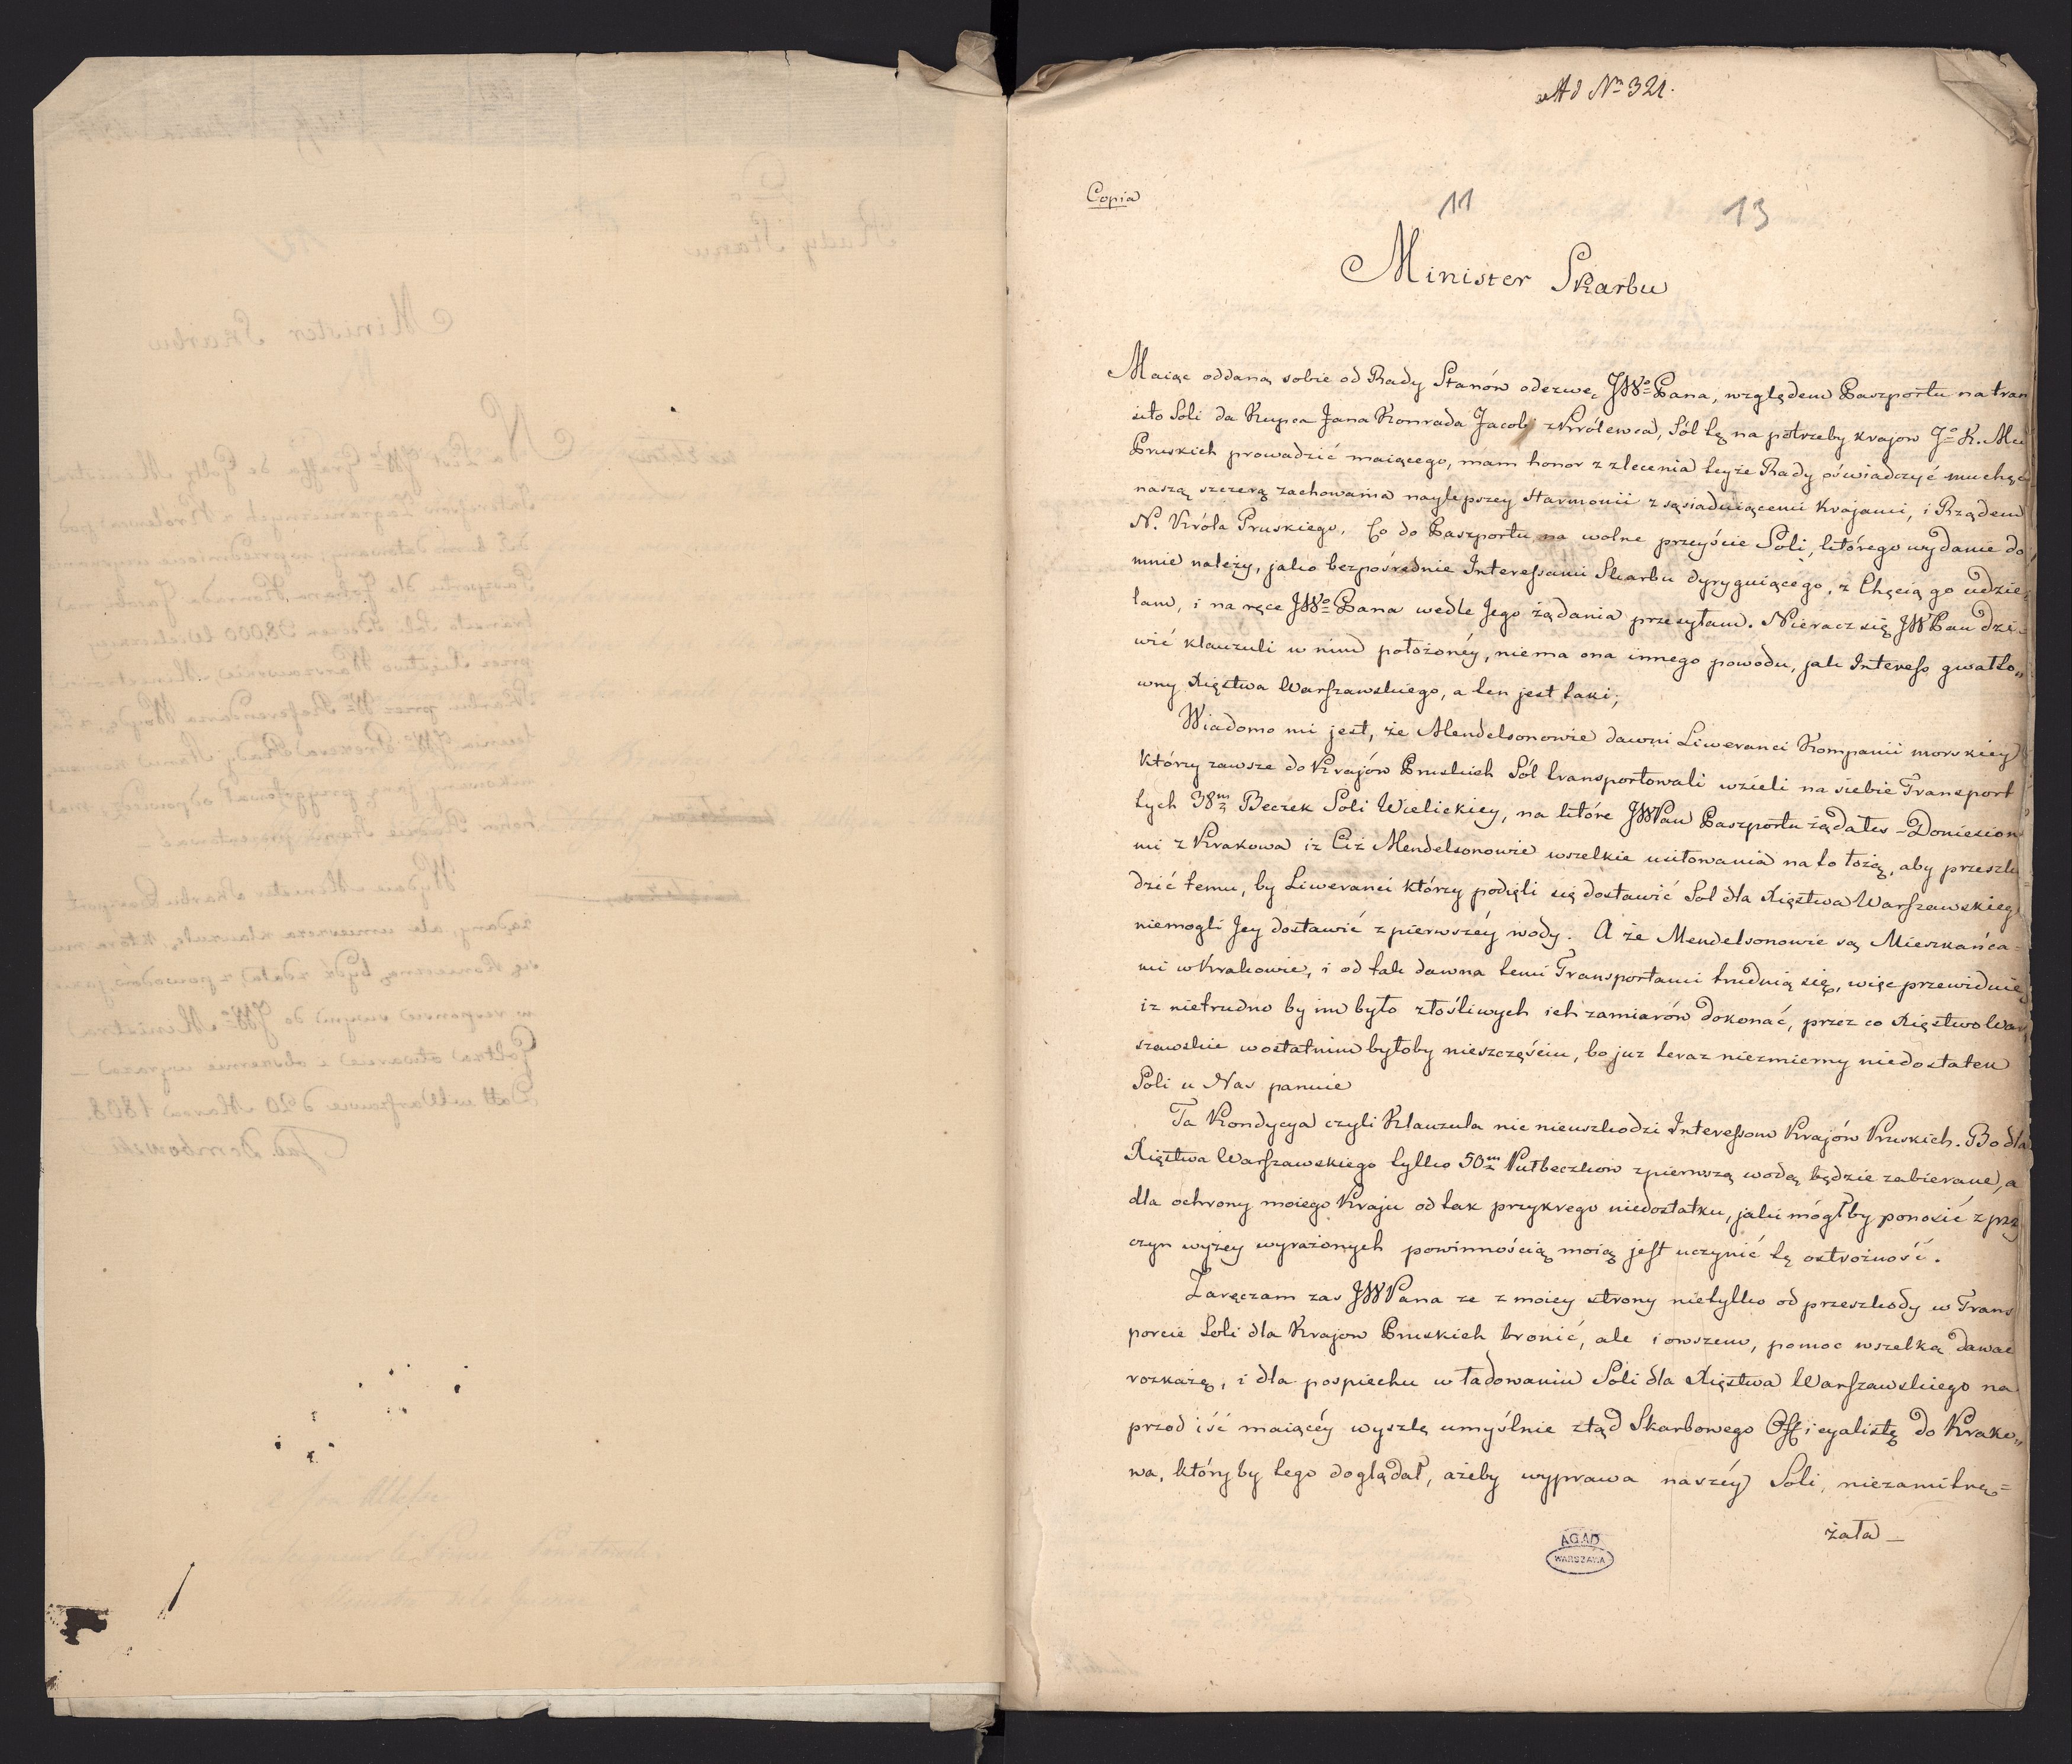 Ad N<sup>o</sup> 321.
Copia
11
13
Minister Skarbu
Maiąc oddaną sobie od Rady Stanów odezwę JW<sup>o</sup> Pana, względem Paszportu na tran
sito Soli da Kupca Jana Konrada Jacobi z Królewca, Sól tę na potrzeby krajow J<sup>o</sup> K. Mci
Pruskich prowadzić maiącego, mam honor z zlecenia teyże Rady oświadczyć mu chęć
naszą szczerą zachowania naylepszey Harmonii z sąsiaduiącemi Krajami, i Rządem
N. Króla Pruskiego. Co do Paszportu na wolne przeyście Soli, którego wydanie do
mnie należy, jako bezpośrednie Interessami Skarbu dyryguiącego, z Chęcią go udzie
lam, i na ręce JW<sup>o</sup> Pana wedle Jego żądania przesyłam. Nieracz się JWPan dzi
wić klauzuli w nim położonéy, niema ona innego powodu, jak Interess gwałto„
wny Xięstwa Warszawskiego, a ten jest taki;
Wiadomo mi jest, że Mendelsonowie dawni Liweranci Kompanii morskiey
którzy zawsze do Krajów Pruskich Sól transportowali wzieli na siebie Transport
tych 38<sup>m</sup> Beczek Soli Wielickiey, na które JWPan Paszportu żądałes - Doniesion
mi z Krakowa iz Ciż Mendelsonowie wszelkie usiłowania na to łożą, aby przeszko
dzić temu, by Liweranci którzy podięli się dostawić Sol dla Xięstwa Warszawskieg
niemogli Jey dostawić z pierwszéy wody. A że Mendelsonowie są Mieszkańca-
mi w Krakowie, i od tak dawna temi Transportami trudnią się, więc przewiduię
iz nietrudno by im było złośliwych ich zamiarów dokonać, przez co Xięstwo War
szawskie w ostatnim byłoby nieszczęściu, bo juz teraz niezmierny niedostatek
Soli u Nas panuie
Ta Kondycya czyli Klauzula nic nieuszkodzi Interessom Krajów Pruskich. Bo dla
Xięstwa Warszawskiego tylko 50<sup>m</sup> Pułbeczkow z pierwszą wodą będzie zabierane, a
dla ochrony moiego Kraju od tak przykrego niedostatku, jaki mógłby ponosić z przy
czyn wyżey wyrażonych powinnością moią jest uczynić tę ostrożność.
Zaręczam zas JWPana ze z moiey strony nietylko od przeszkody w Trans
porcie Soli dla Krajow Pruskich bronić, ale i owszem, pomoc wszelką dawac
rozkażę, i dla pospiechu w ładowaniu Soli dla Xięstwa Warszawskiego na
przod iść maiącéy wyszlę umyślnie ztąd Skarbowego Officyalistę do Krako„
wa, któryby tego doglądał, ażeby wyprawa naszéy Soli, niezamitrę=
żała _
AGAD
WARSZAWA